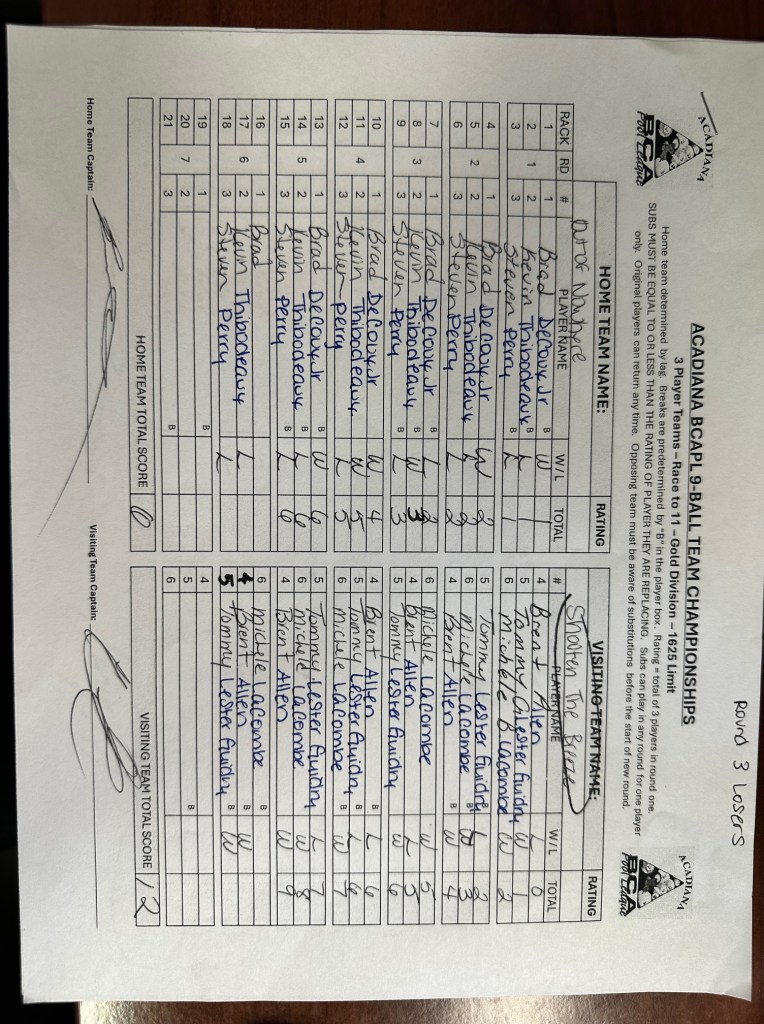 Round 3 Losers
ACADIANA BCA Pool League
ACADIANA BCAPL 9-BALL TEAM CHAMPIONSHIPS
ACADIANA BCA Pool League
3 Player Teams – Race to 11 – Gold Division – 1625 Limit
Home team determined by lag. Breaks are predetermined by "B" in the player box. Rating = total of 3 players in round one.
SUBS MUST BE EQUAL TO OR LESS THAN THE RATING OF PLAYER THEY ARE REPLACING. Subs can play in any round for one player
only. Original players can return any time. Opposing team must be aware of substitutions before the start of new round.
HOME TEAM NAME: RATING VISITING TEAM NAME: RATING
Out of Nowhere Shooten The Breeze
RACK RD # PLAYER NAME W/L TOTAL # PLAYER NAME W/L TOTAL
1 1 Brad DeCouy Jr B W 1 4 Brent Allen L 0
2 1 2 Kevin Thibodeaux B L 1 5 Tommy Lester Guidry W 1
3 3 Steven Perry B L 1 6 Michele B Lacombe W 2
4 1 Brad DeCouy Jr W 2 5 Tommy Lester Guidry B L 2
5 2 2 Kevin Thibodeaux L 2 6 Michele Lacombe B W 3
6 3 Steven Perry L 2 4 Brent Allen B W 4
7 1 Brad DeCouy Jr B L 2 6 Michele Lacombe W 5
8 3 2 Kevin Thibodeaux B W 3 4 Brent Allen L 5
9 3 Steven Perry B L 3 5 Tommy Lester Guidry W 6
10 1 Brad DeCouy Jr W 4 4 Brent Allen B L 6
11 4 2 Kevin Thibodeaux W 5 5 Tommy Lester Guidry B L 6
12 3 Steven Perry L 5 6 Michele Lacombe B W 7
13 1 Brad DeCouy Jr B W 6 5 Tommy Lester Guidry L 7
14 5 2 Kevin Thibodeaux B L 6 6 Michele Lacombe W 8
15 3 Steven Perry B L 6 4 Brent Allen W 9
16 1 Brad 6 Michele Lacombe B
17 6 2 Kevin Thibodeaux L 4 Brent Allen B W
18 3 Steven Perry L 5 Tommy Lester Guidry B W
19 1 B 4
20 7 2 5 B
21 3 B 6
HOME TEAM TOTAL SCORE VISITING TEAM TOTAL SCORE 12
Home Team Captain: Visiting Team Captain: